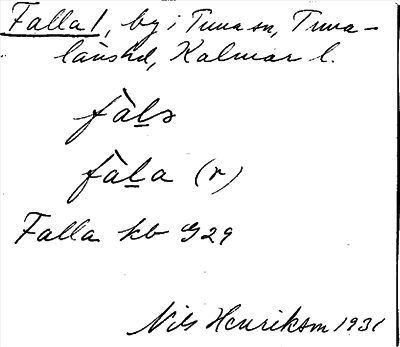 Falla 1, by i Tuna sn, Tuna-
läns hd, Kalmar l.
fàl̲s
fàl̲a (r)
Falla kb G29
Nils Henrikson 1931